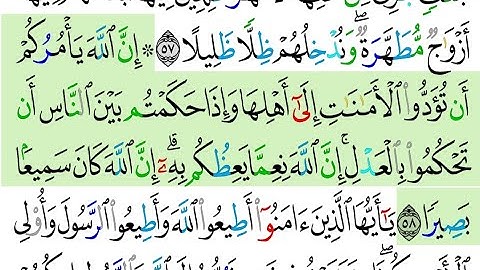 أَزْوَٰجٌ مُّطَهَّرَةٌ ۖ وَنُدْخِلُهُمْ ظِلًّا ظَلِيلًا ٥٧ ۞ إِنَّ ٱللَّهَ يَأْمُرُكُمْ
أَن تُؤَدُّوا۟ ٱلْأَمَـٰنَـٰتِ إِلَىٰٓ أَهْلِهَا وَإِذَا حَكَمْتُم بَيْنَ ٱلنَّاسِ أَن
تَحْكُمُوا۟ بِٱلْعَدْلِ ۚ إِنَّ ٱللَّهَ نِعِمَّا يَعِظُكُم بِهِۦٓ ۗ إِنَّ ٱللَّهَ كَانَ سَمِيعًۢا
بَصِيرًا ٥٨ يَـٰٓأَيُّهَا ٱلَّذِينَ ءَامَنُوٓا۟ أَطِيعُوا۟ ٱللَّهَ وَأَطِيعُوا۟ ٱلرَّسُولَ وَأُو۟لِى